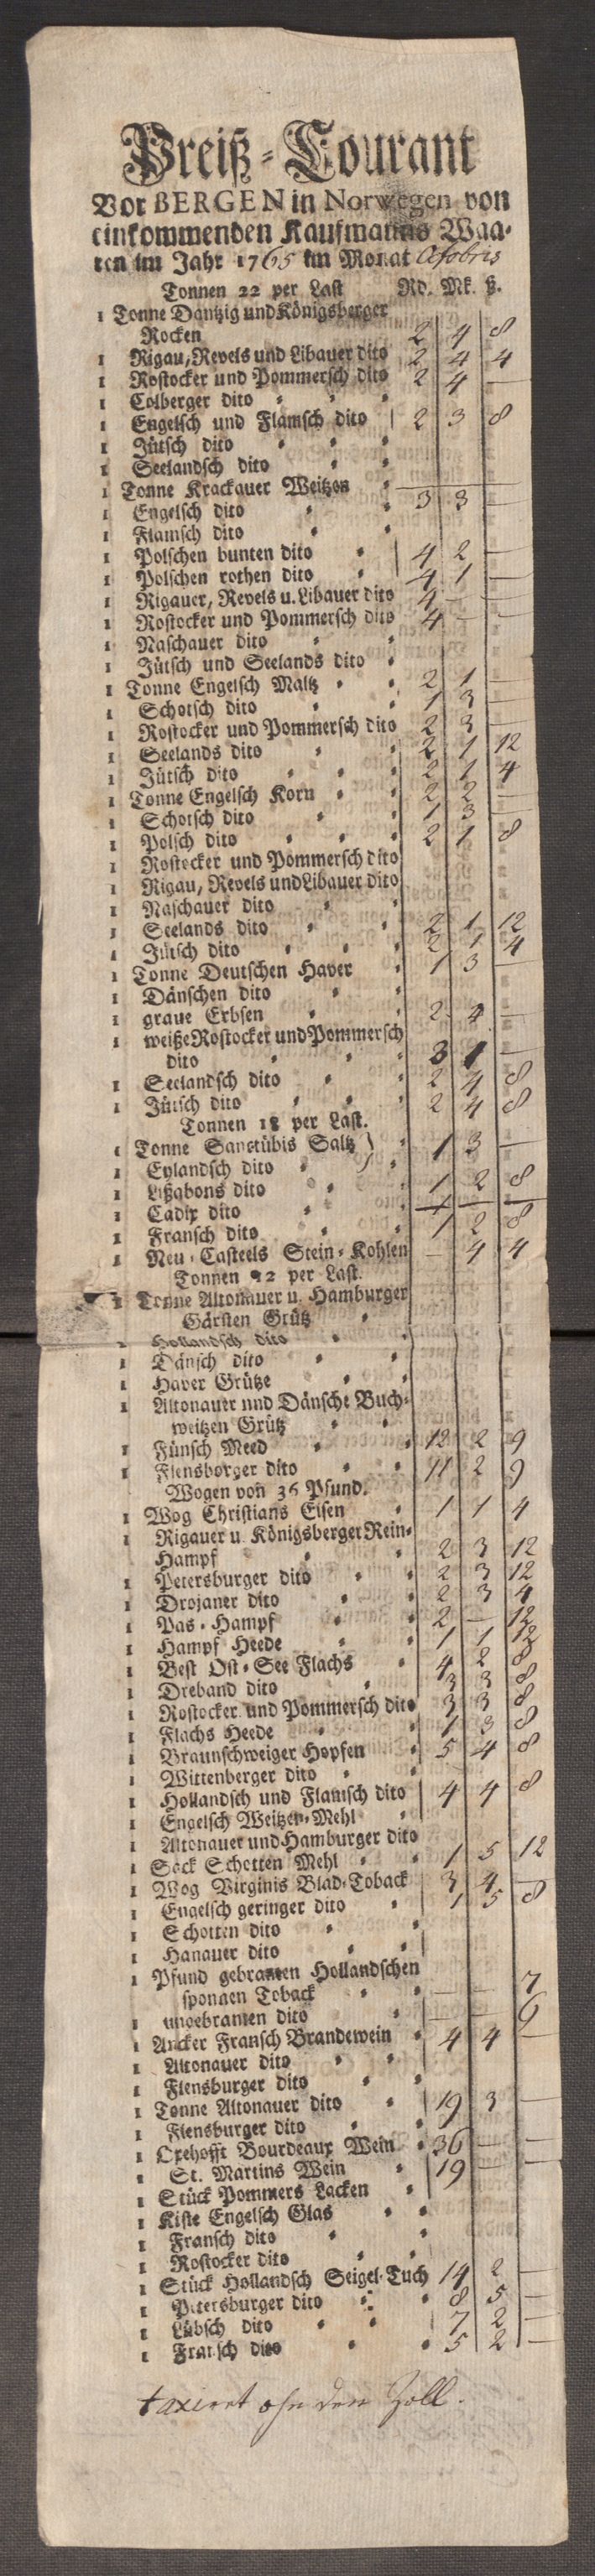 Preiß-Courant
Vor BERGEN in Norwegen von
einkommenden Kaufmanns Waa-
ren im Jahr 1765 im Monat
Tonnen 22 per Last Rd. Mk. ß.
1 Tonne Dantzig und Königsberger
Rocken 2 4 8
1 Rigau, Revels und Libauer dito 2 4 4
1 Rostocker und Pommersch dito 2 4 —
1 Colberger dito
1 Engelsch und Flamsch dito 2 3 8
1 Jütsch dito
1 Seelandsch dito
1 Tonne Krackauer Weitzen
1 Engelsch dito 3 3 —
1 Flamsch dito
1 Polschen bunten dito 4 2 —
1 Polschen rothen dito 4 1 —
1 Rigauer, Revels u. Libauer dito 4 — —
1 Rostocker und Pommersch dito 4 — —
1 Naschauer dito
1 Jütsch und Seelands dito
1 Tonne Engelsch Maltz 2 1 —
1 Schotsch dito 1 3 —
1 Rostocker und Pommersch dito 2 3 —
1 Seelands dito 2 1 12
1 Jütsch dito 2 1 4
1 Tonne Engelsch Korn 2 2 —
1 Schotsch dito 1 3 —
1 Polsch dito 2 1 8
1 Rostocker und Pommersch dito
1 Rigau, Revels und Libauer dito
1 Naschauer dito
1 Seelands dito 2 1 12
1 Jütsch dito 2 1 4
1 Tonne Deutschen Haver 1 3 —
1 Dänschen dito
1 graue Erbsen 2 4 —
1 weiße Rostocker und Pommersch
dito 3 1 —
1 Seelandsch dito 2 4 8
1 Jütsch dito 2 4 8
Tonnen 18 per Last.
1 Tonne Sanctübis Saltz } 1 3 —
1 Eylandsch dito
1 Lißabons dito 1 2 8
1 Cadix dito
1 Fransch dito 1 2 8
1 Neu-Casteels Stein-Kohlen — 4 4
Tonnen 22 per Last.
1 Tonne Altonauer u. Hamburger
Gärsten Grütz
1 Hollandsch dito
1 Dänsch dito
1 Haver Grütze
1 Altonauer und Dänsche Buch-
weitzen Grütz
1 Fünsch Meed 12 2 9
1 Flensborger dito 11 2 9
Wogen von 36 Pfund.
1 Wog Christians Eisen 1 1 4
1 Rigauer u. Königsberger Rein-
Hampf 2 3 12
1 Petersburger dito 2 3 12
1 Drojaner dito 2 3 4
1 Pas-Hampf 2 — 12
1 Hampf Heede 1 1 12
1 Best Ost-See Flachs 4 2 8
1 Dreband dito 3 3 8
1 Rostocker und Pommersch dito 3 3 8
1 Flachs Heede 1 3 8
1 Braunschweiger Hopfen 5 4 8
1 Wittenberger dito
1 Hollandsch und Flamsch dito 4 4 8
1 Engelsch Weitzen-Mehl
1 Altonauer und Hamburger dito
1 Sack Schotten Mehl 1 5 12
1 Wog Virginis Blad-Toback 3 4 —
1 Engelsch geringer dito 1 5 8
1 Schotten dito
1 Hanauer dito
1 Pfund gebramen Hollandschen
sponnen Toback — — 7
1 ungebramen dito — — 6
1 Ancker Fransch Brandewein 4 4 —
1 Altonauer dito
1 Flensburger dito
1 Tonne Altonauer dito 19 3 —
1 Flensburger dito
1 Oxehofft Bourdeaux Wein 36 — —
1 St. Martins Wein 19 — —
1 Stück Pommers Lacken
1 Kiste Engelsch Glas
1 Fransch dito
1 Rostocker dito
1 Stück Hollandsch Seigel-Tuch 14 2 —
1 Petersburger dito 8 5 —
1 Lübsch dito 7 2 —
1 Fransch dito 5 2 —
taxiert ohn den Zoll.